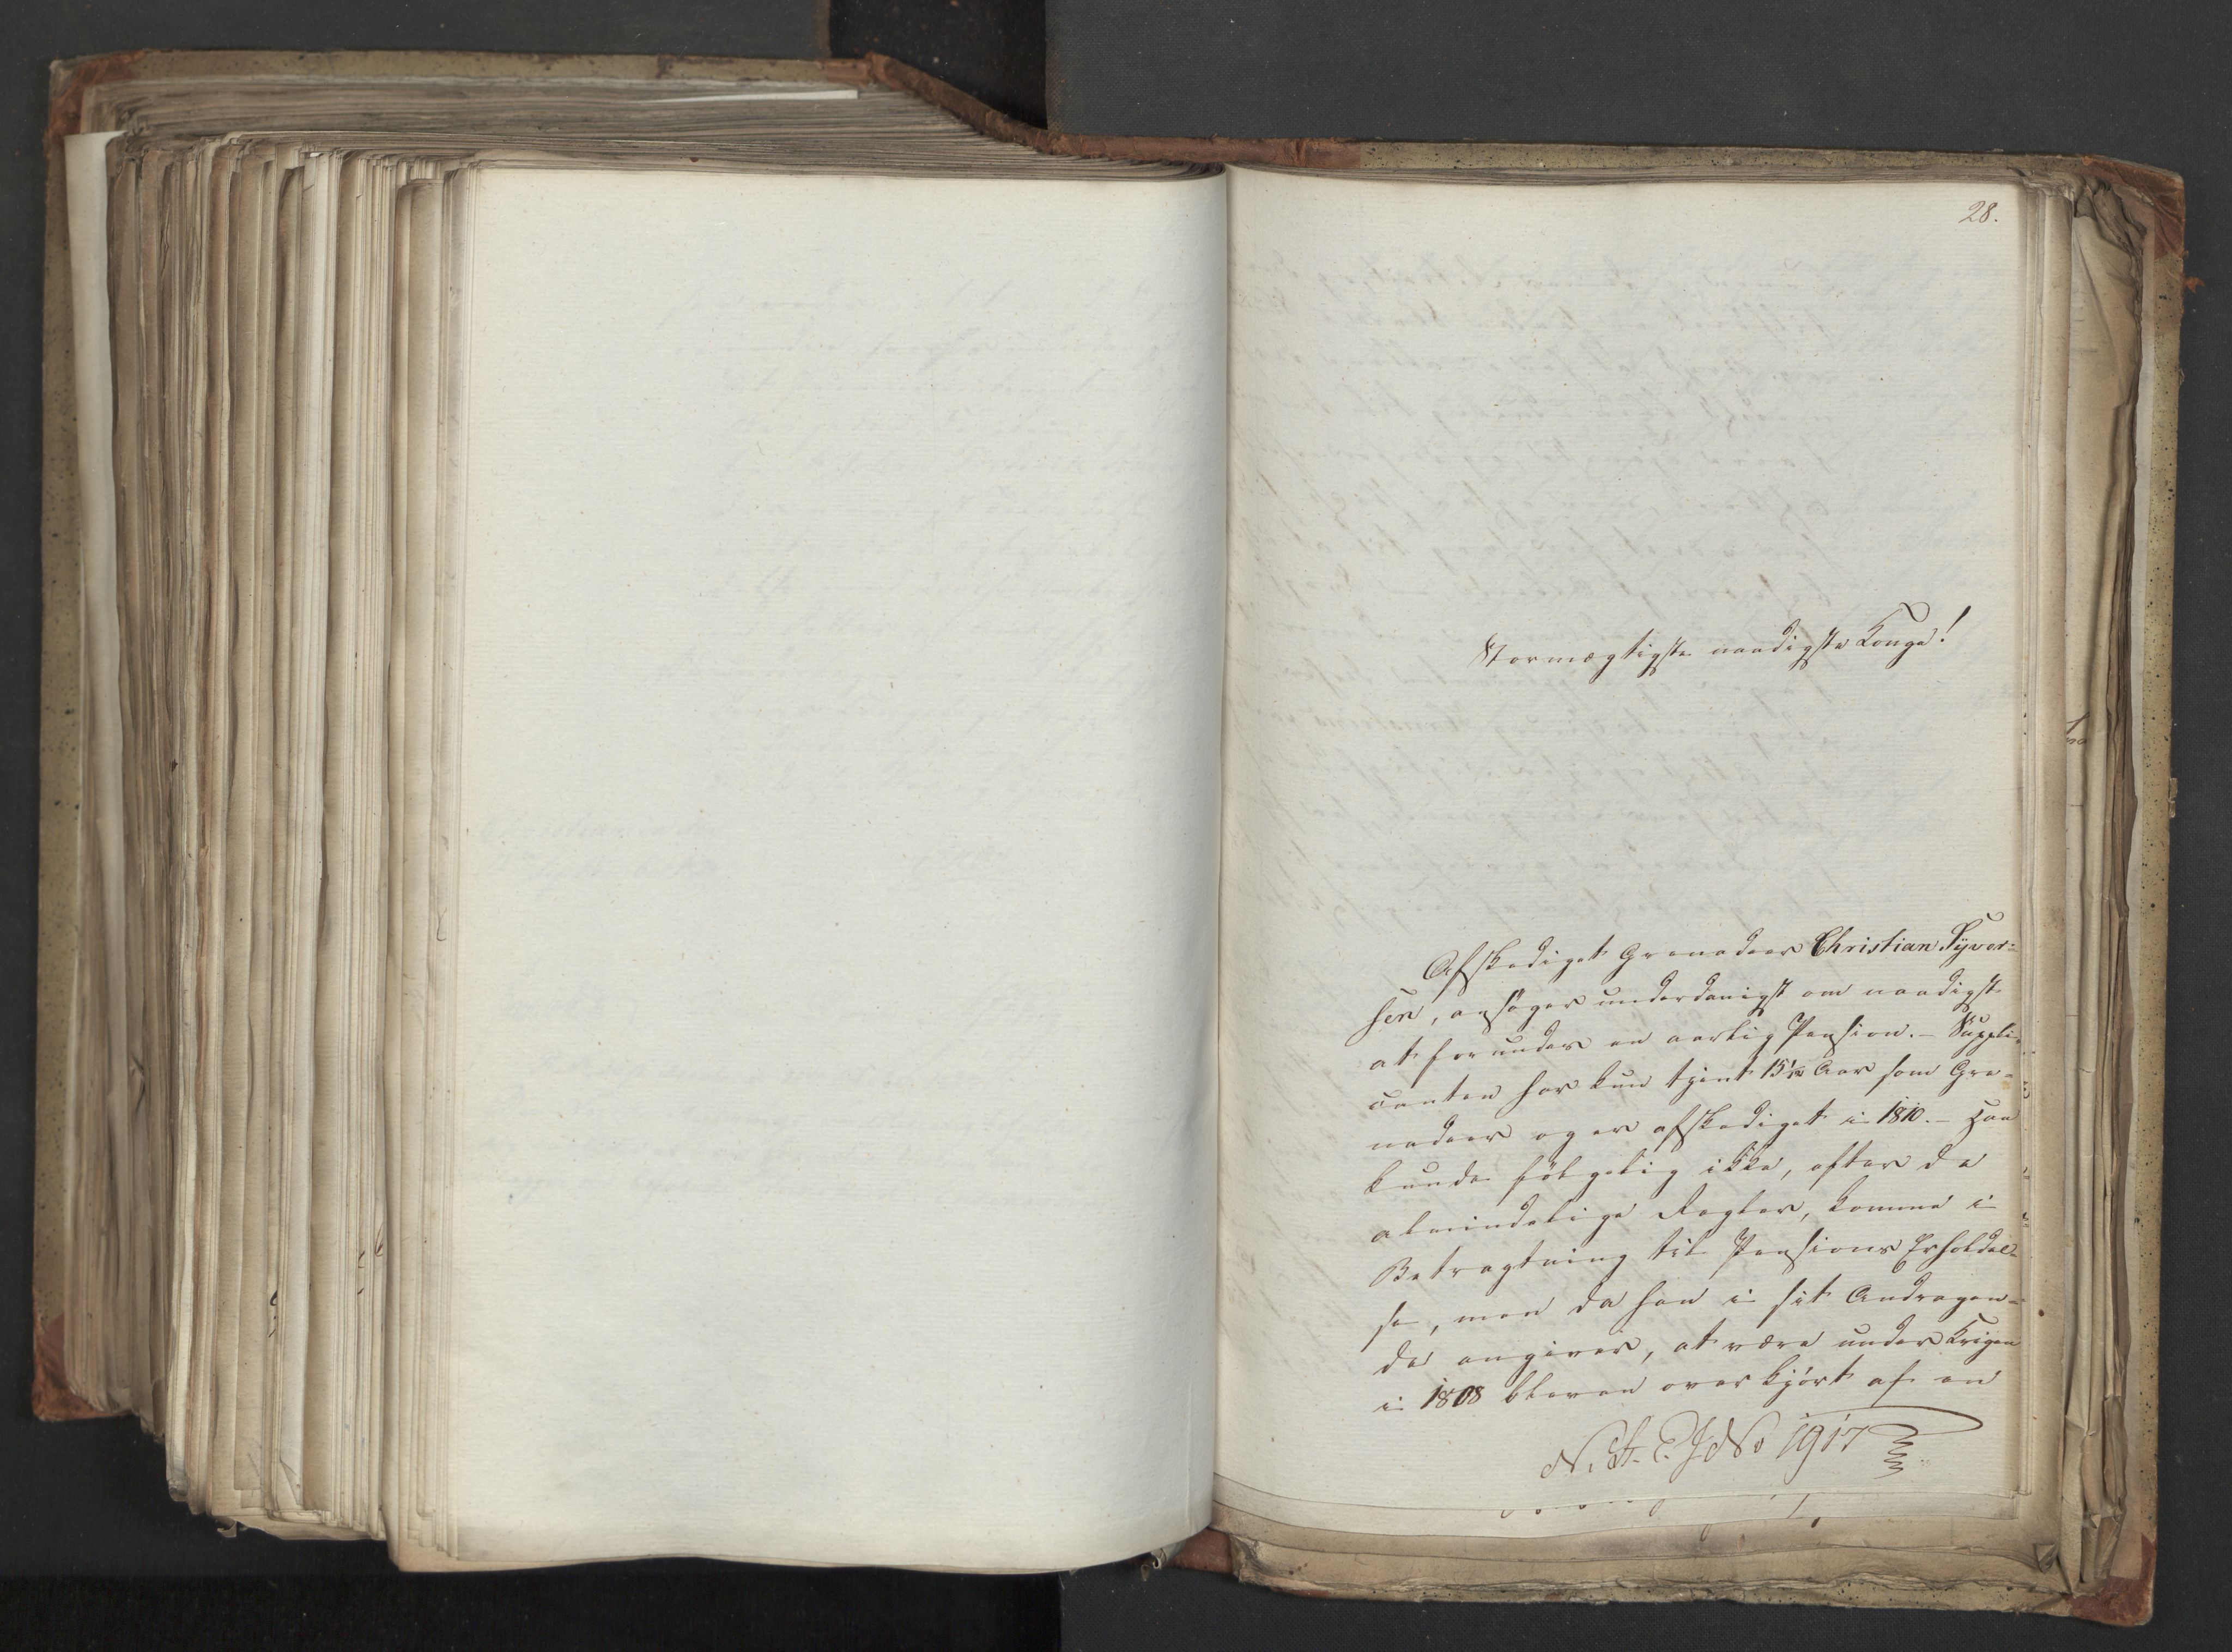 28.
Stormægtigste naadigste Konge!
Afskediget Grenadeer Christian Syver=
sen, ansøger underdanigst om naadigst
at forundes en aarlig Pension. – Suppli=
canten har kun tjent 15 1/12 Aar som Gre=
nadeer og er afskediget i 1810. – Han
kunde følgelig ikke, efter de
almindelige Regler, komme i
Betragtning til Pensions Erholdel=
se, men da han i sit Andragen=
de angiver, at være under Krigen
i 1808 bleven overkjørt af en
No 1917